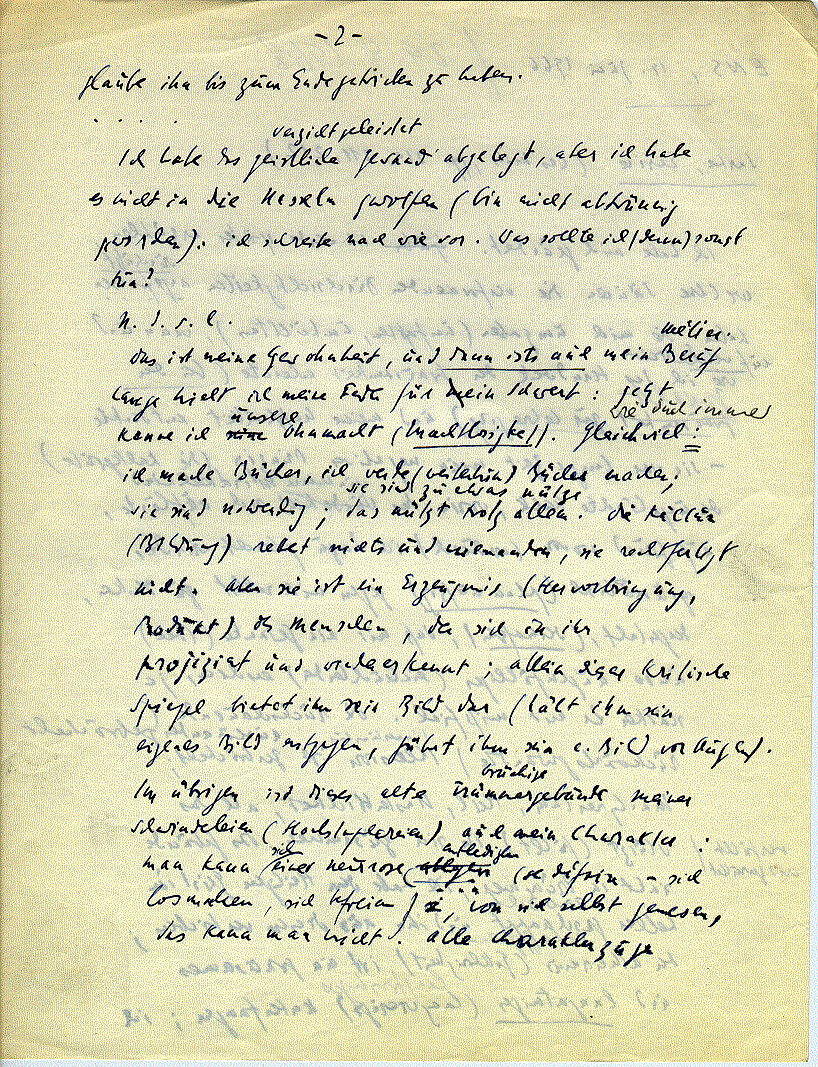 - 2 -
glaube ihn bis zum Ende getrieben zu haben.
. . . .
verzicht geleistet
Ich habe das geistliche Gewand abgelegt, aber ich habe
es nicht in die Nesseln geworfen (bin nicht abtrünnig
geworden): ich schreibe nach wie vor. Was sollte ich (denn) sonst
tun?
N. d. s. l.
métier.
das ist meine Gewohnheit, und dann ists auch mein Beruf
Lange hielt ich meine Feder für mein Schwert: jetzt
wie auch immer
unsere
kenne ich Ohnmacht (Machtlosigkeit). Gleichviel:
ich mache Bücher, ich werde (weiterhin) Bücher machen;
sie sind zu etwas nütze
sie sind notwendig; das nützt trotz allem. Die Kultur
(Bildung) rettet nichts und niemanden, sie rechtfertigt
nicht. Aber sie ist ein Erzeugnis (Hervorbringung,
Produkt) des Menschen, der sich in ihr
projiziert und wiedererkennt; allein dieser kritische
Spiegel bietet ihm sein Bild dar (hält ihm sein
eigenes Bild entgegen, führt ihm sein e. Bild vor Augen).
brüchige
Im übrigen ist dieses alte Trümmergebäude meiner
Schwindeleien (Hochstapeleien) auch mein Charakter:
sich entledigen
man kann einer Neurose (se défaire – sich
losmachen, sich befreien), von sich selbst genesen,
das kann man nicht. Alle Charakterzüge